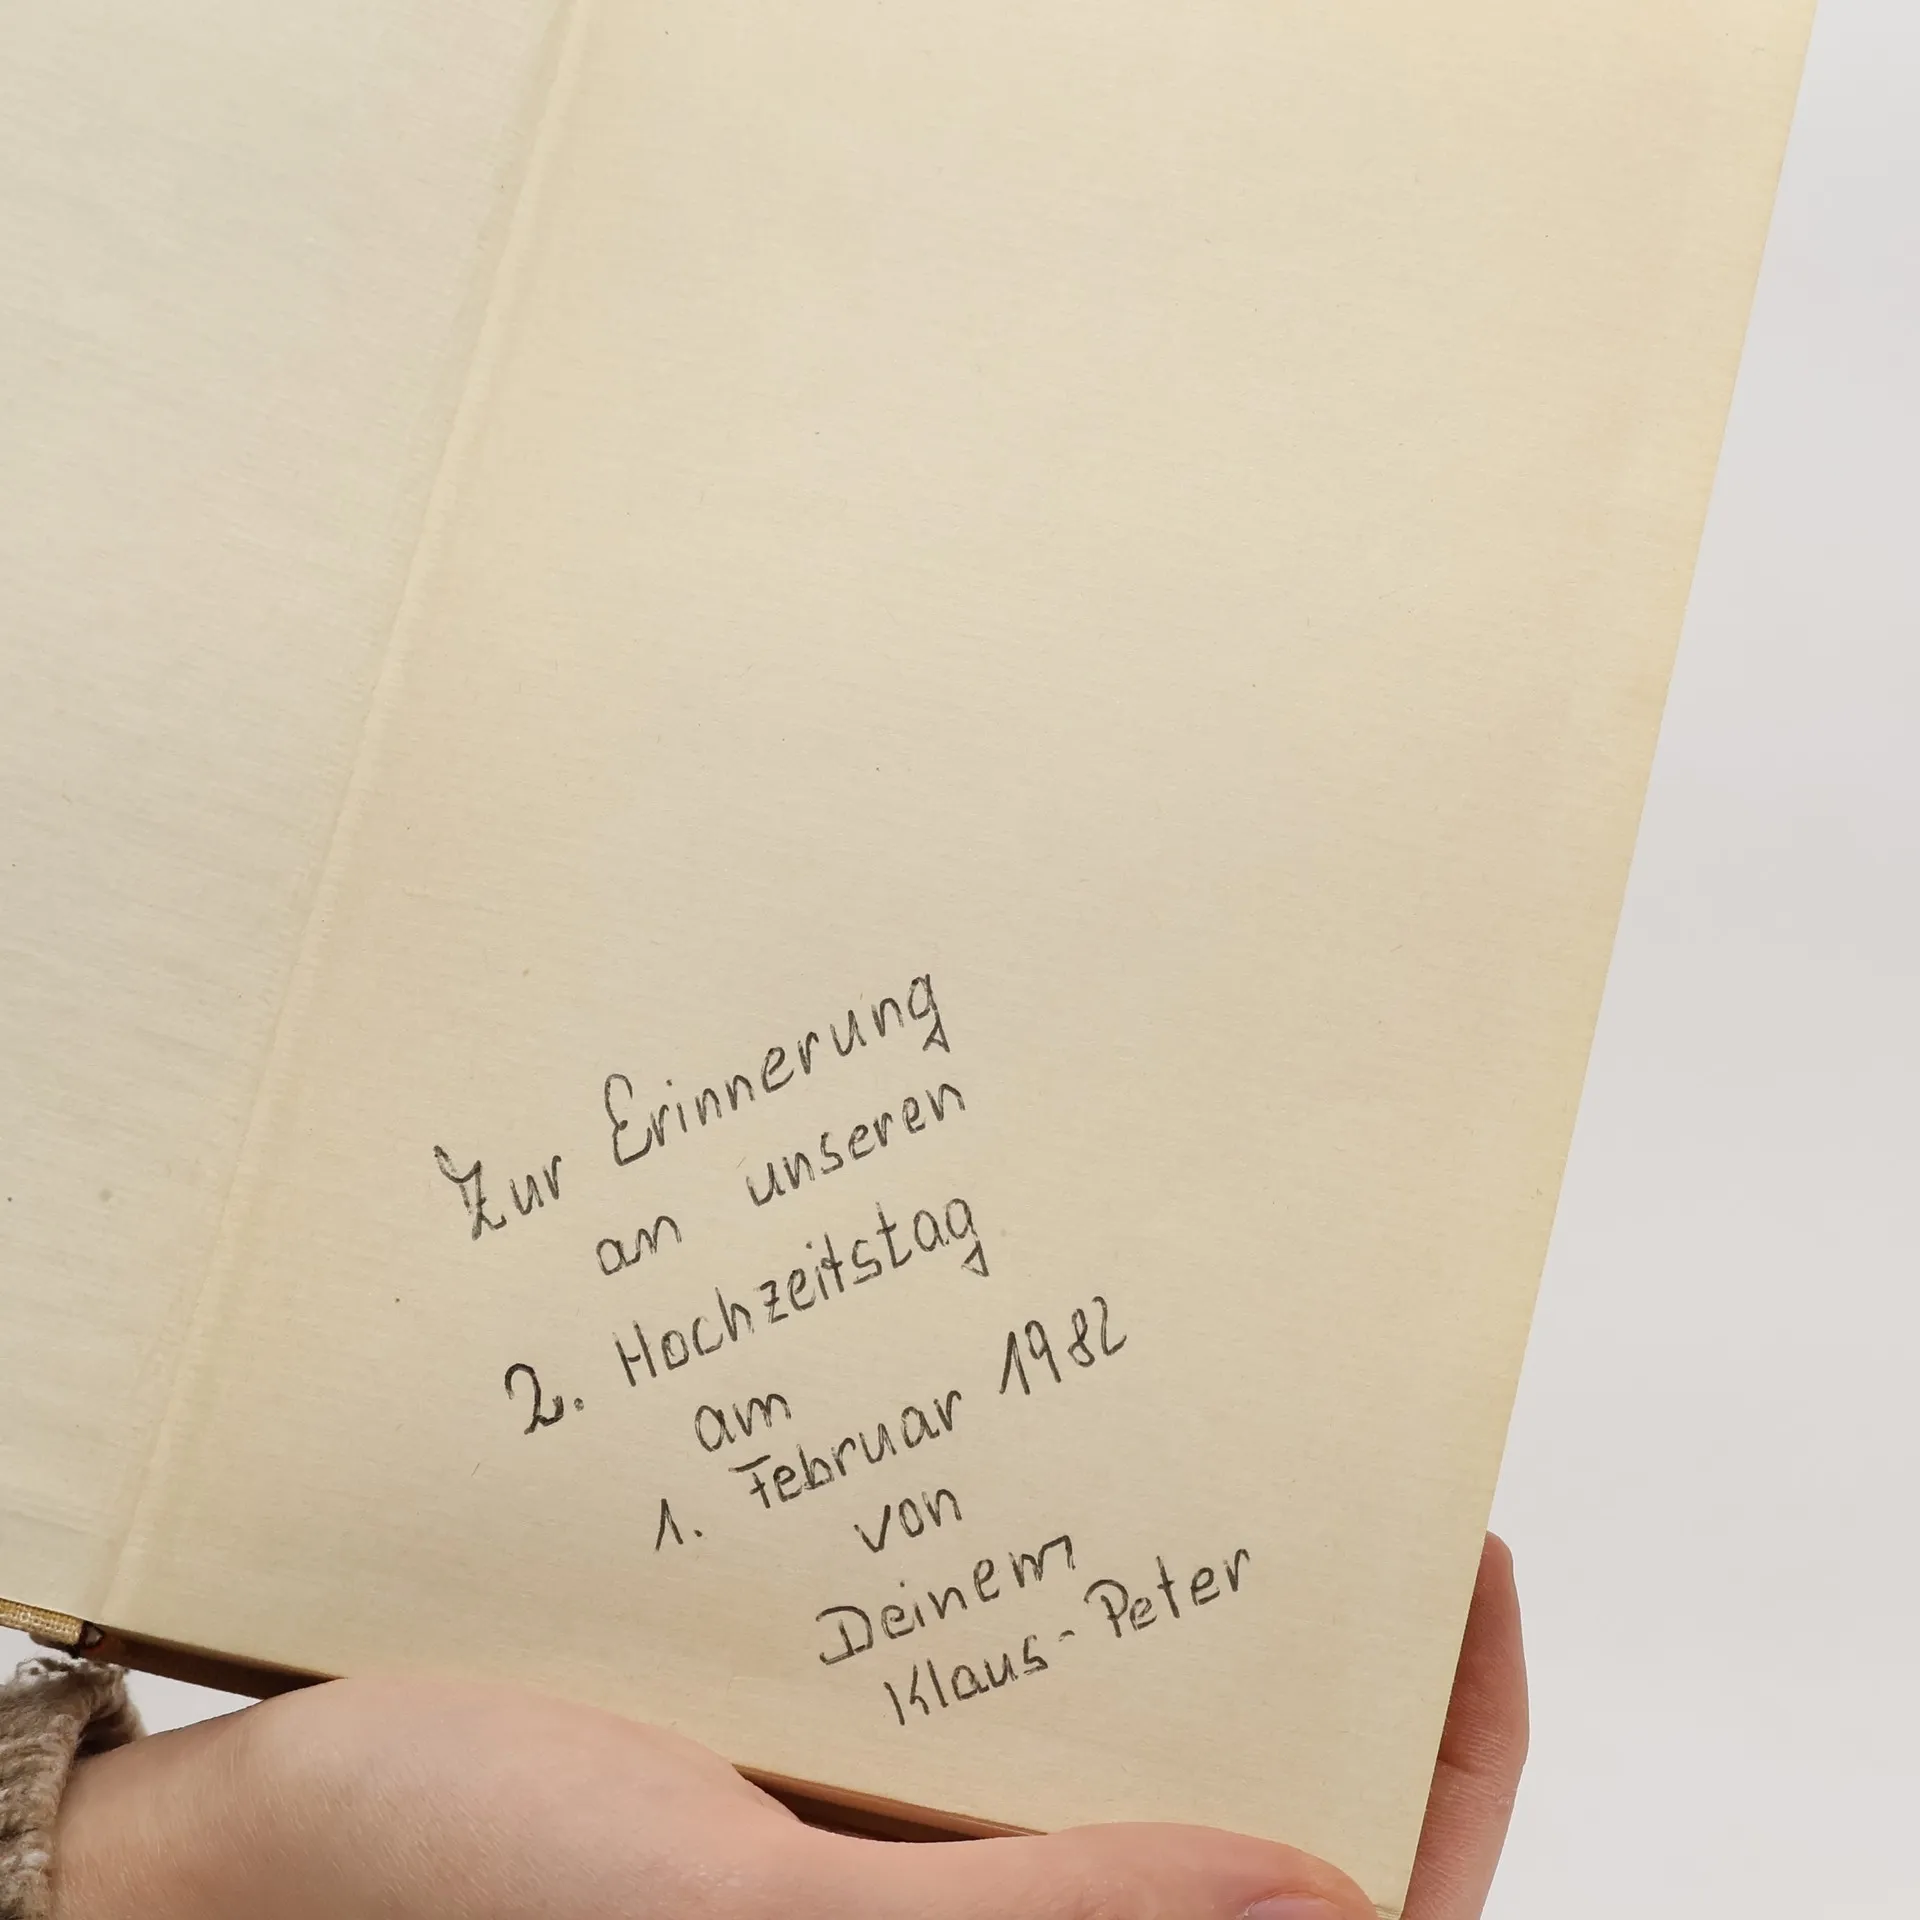 Zur Erinnerung
an unseren
2. Hochzeitstag
am
1. Februar 1982
von
Deinem
Klaus-Peter